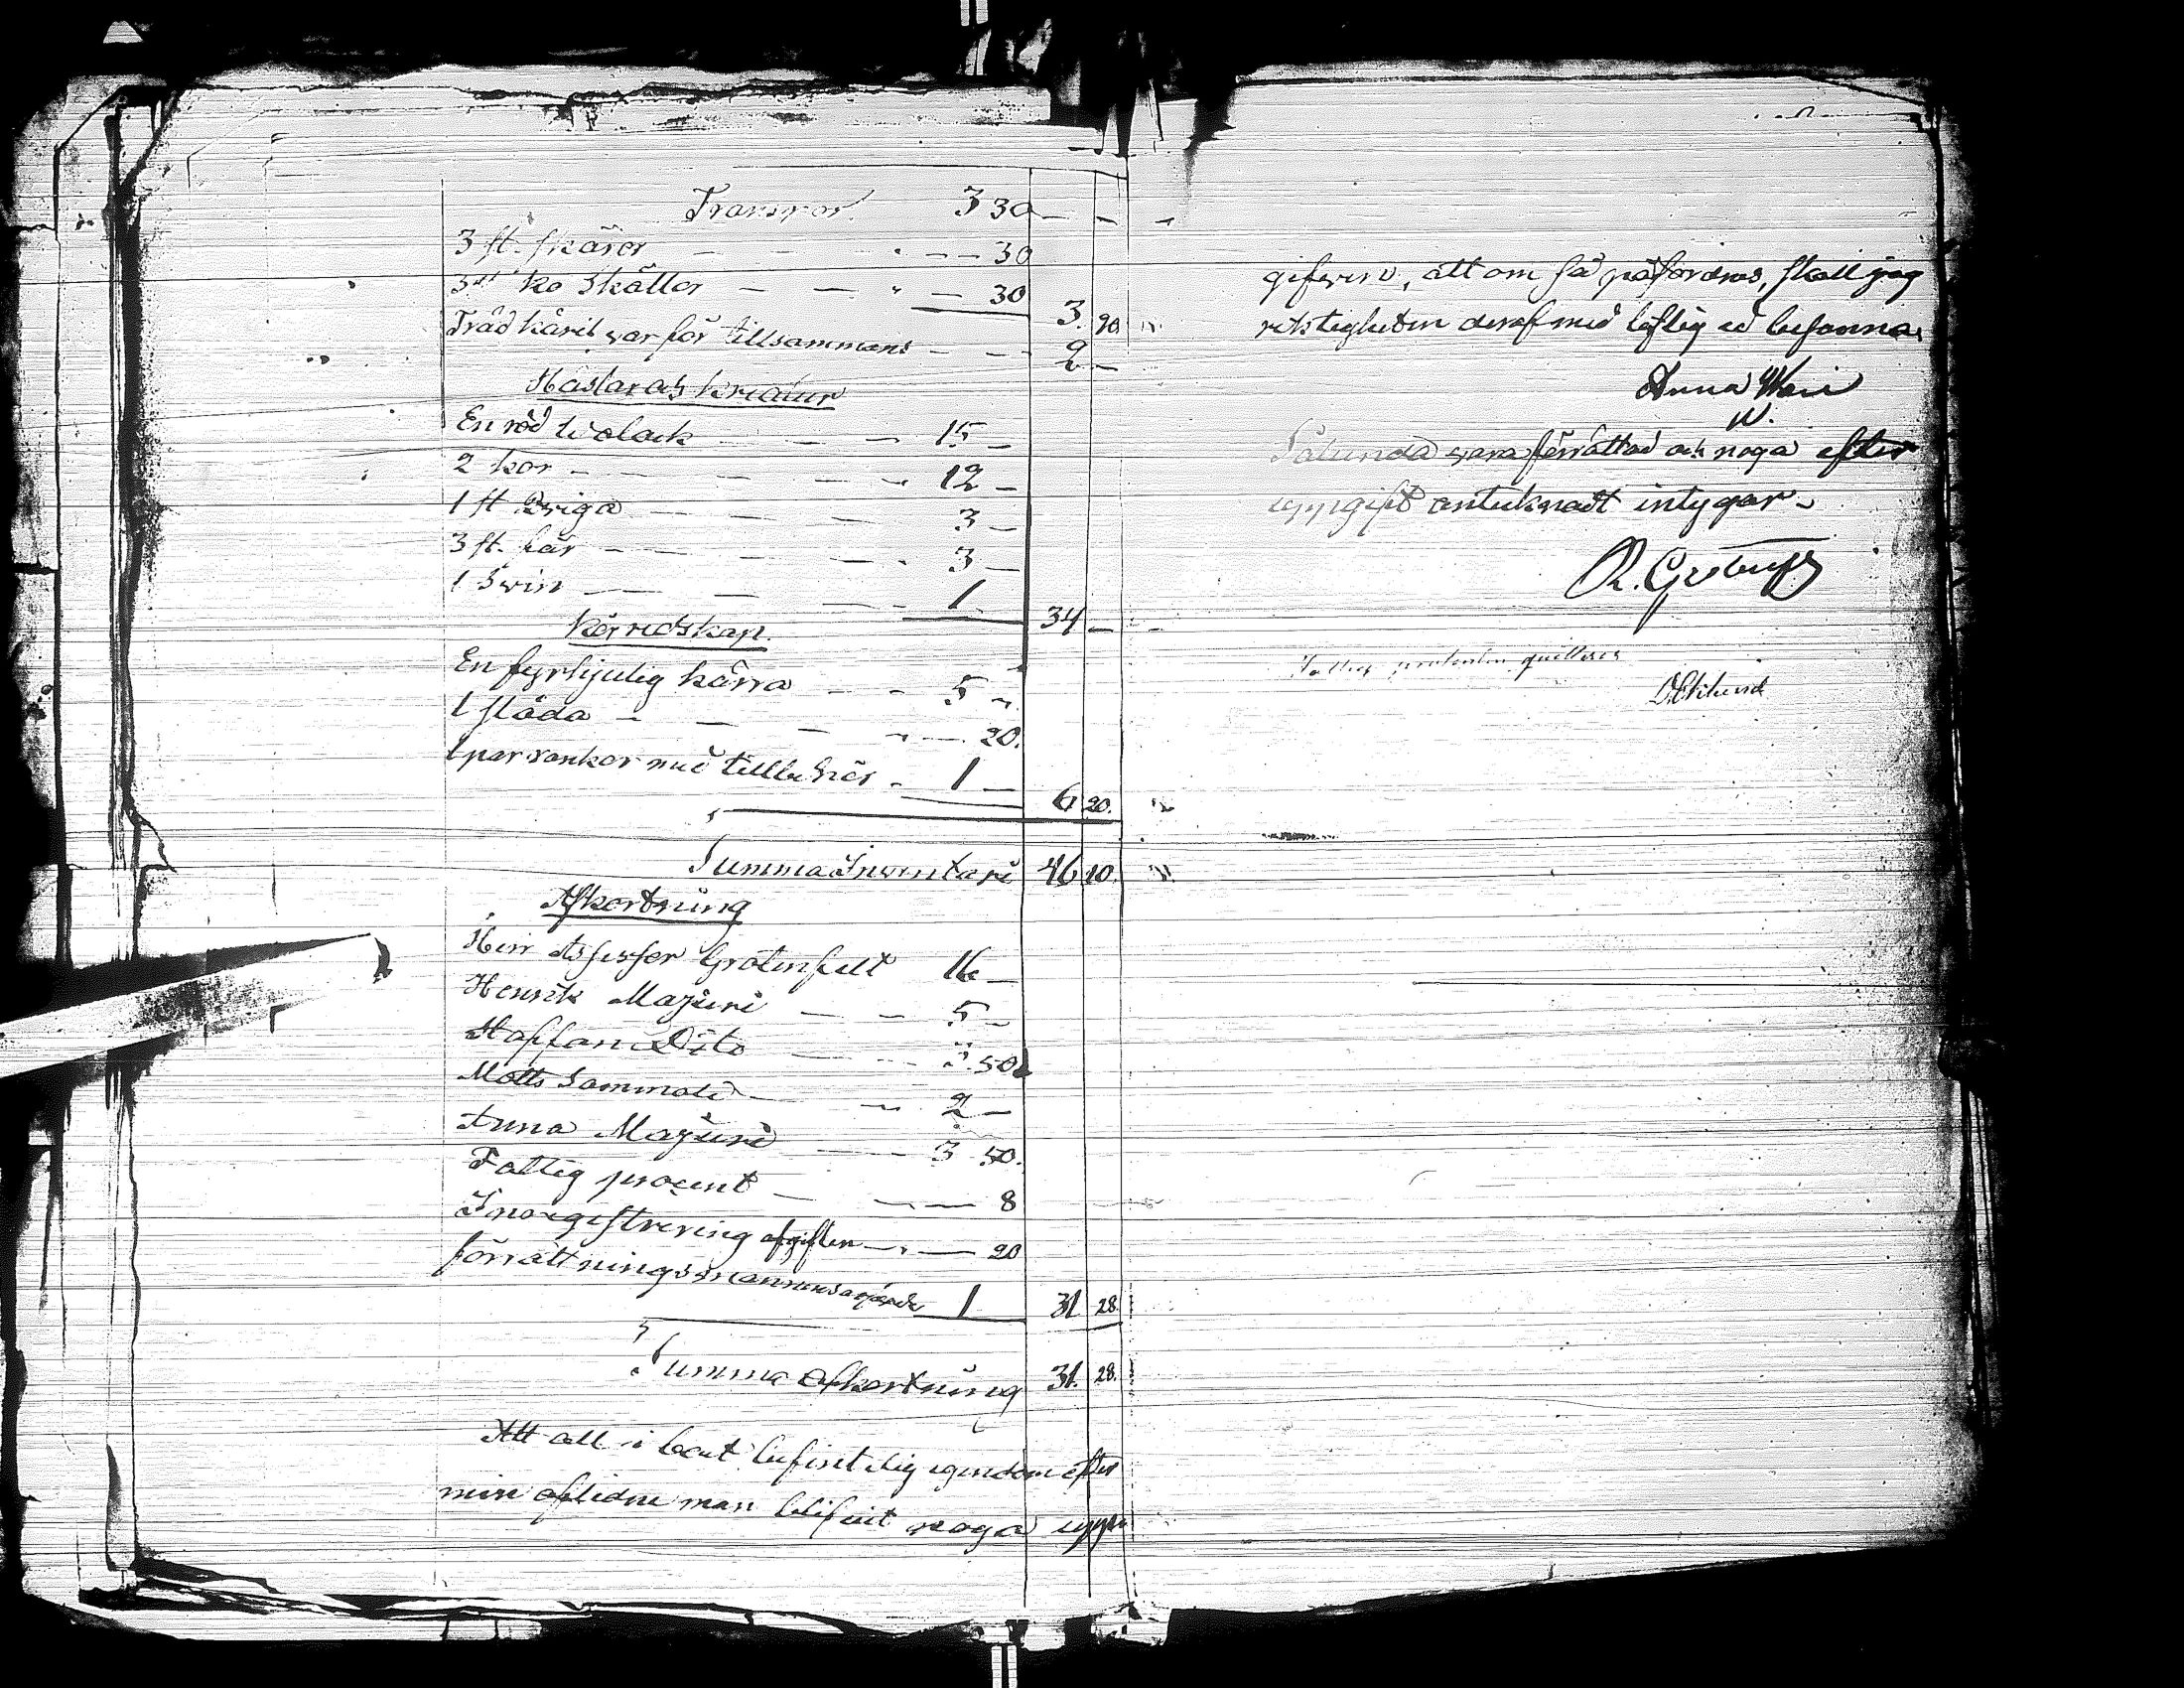 Transport 3 30 — —
3 st. skäror — — „ — 30
3 d:o ko skällor — — „ — 30 3. 90.
Träd käril var för tillsammans — — 2 —
Hästar och kreatur
En röd walack — — — 15 —
2 kor — — — — 12 —
1 st. qviga — — — 3 —
3 st. får — — — 3 —
1 Swin — — — 1 34 —
Kör redskap.
En fyrhjulig kärra — — 5 —
1 släda — — — — 20.
1 par rankor med tillbehör — 1 — 6 20.
Summa Inventarii 46 10.
Afkortning
Herr Assessor Grotenfelt 16 —
Henrik Majuri — — 5 —
Staffan Dito — — 3. 50
Matts Sammaled — — 2 —
Anna Majuri — — 3 50.
Fattig procent — — — 8
Inregistrering afgiften — „ — 20
förrättningsmannens arfvode 1 31 28.
Summa afkortning 31. 28.
Att all i boet befintelig egendom efter
min aflidne man blifvit noga uppe
gifven, att om så påfordras, skall jag
riktigheten deraf med laglig ed besanna.
Anna
Sålunda vara förrättad och noga efter
uppgift antecknadt intygar
Fattig procenten quitteras